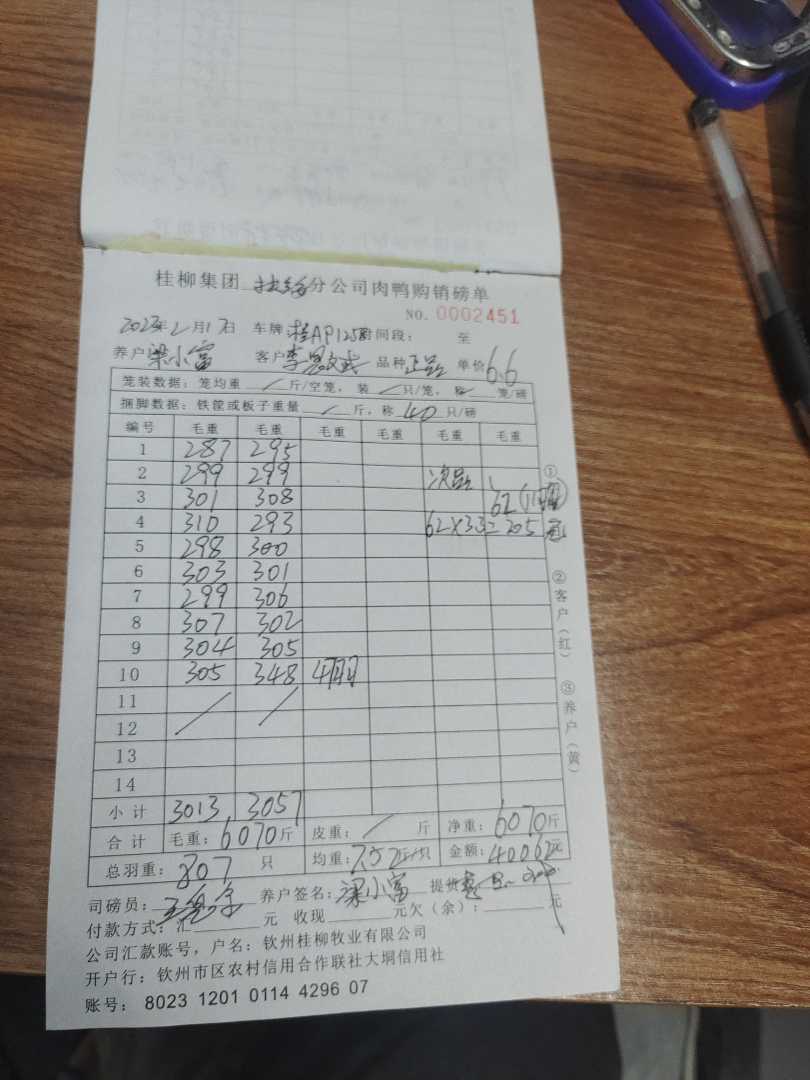 桂柳集团 扶绥 分公司肉鸭购销磅单
NO. 0002451
2023年2月17日 车牌 桂AP1258 时间段: 至
养户 梁小富 客户 品种 正品 单价 6.6
笼装数据: 笼均重 / 斤/空笼, 装 / 只/笼, 称 / 笼/磅
捆脚数据: 铁筐或板子重量 / 斤, 称 40 只/磅
编号 毛重 毛重 毛重 毛重 毛重 毛重
1 287 295
2 299 299 次品
3 301 308 62
4 310 293 62×3.3=205 元
5 298 300
6 303 301
7 299 306
8 307 302
9 304 305
10 305 348 47羽
11 / /
12
13
14
小计 3013 3057
合计 毛重: 6070 斤 皮重: / 斤 净重: 6070 斤
总羽重: 807 只 均重: 7.52 斤/只 金额: 40062 元
司磅员: 养户签名: 梁小富 提货
付款方式: 汇 元 收现 元欠(余): 元
公司汇款账号, 户名: 钦州桂柳牧业有限公司
开户行: 钦州市区农村信用合作联社大垌信用社
账号: 8023 1201 0114 4296 07
①
②客户(红)
③养户(黄)